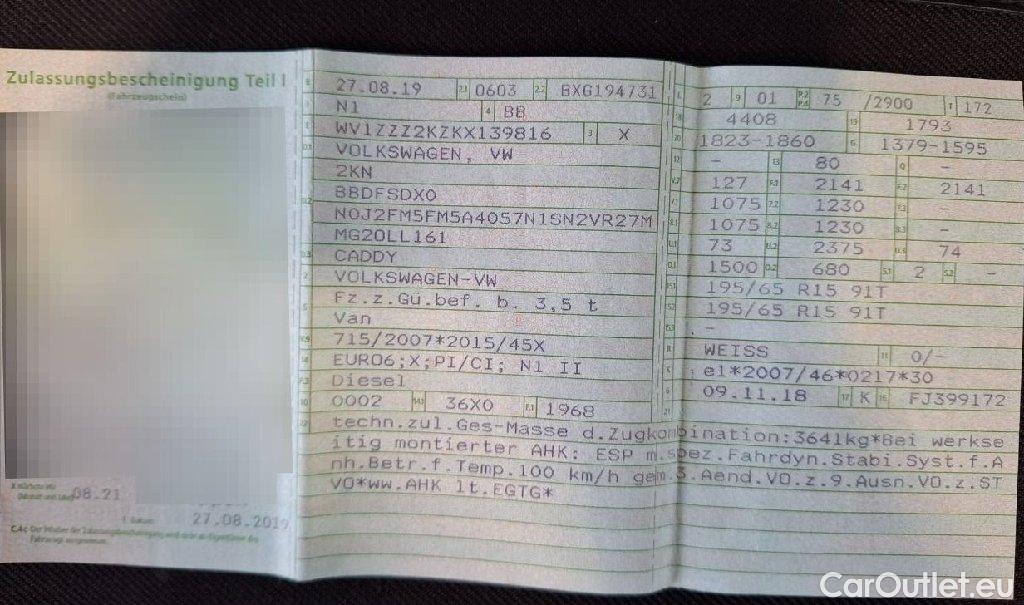 Zulassungsbescheinigung Teil I
(Fahrzeugschein)
08.21
27.08.2019
27.08.19 2.1 0603 2.2 BXG194731
N1 4 BB
WV1ZZZ2KZKX139816 3 X
VOLKSWAGEN, VW
2KN
BBDFSDX0
N0J2FM5FM5A4057N1SN2VR27M
MG20LL161
CADDY
VOLKSWAGEN-VW
Fz.z.Gü.bef. b. 3,5 t
Van
715/2007*2015/45X
EURO6;X;PI/CI; N1 II
Diesel
0002 36X0 1968
2 9 01 75 /2900 T 172
4408 1793
1823-1860 G 1379-1595
- 13 80 Q -
127 2141 2141
1075 1230 -
1075 1230 -
73 2375 74
1500 680 S.1 2 S.2 -
195/65 R15 91T
195/65 R15 91T
-
R WEISS 11 0/-
e1*2007/46*0217*30
09.11.18 17 K 16 FJ399172
techn.zul.Ges-Masse d.Zugkombination:3641kg*Bei werkse
itig montierter AHK: ESP m.spez.Fahrdyn.Stabi.Syst.f.A
nh.Betr.f.Temp.100 km/h gem.3.Aend.VO.z.9.Ausn.VO.z.ST
VO*ww.AHK lt.EGTG*
CarOutlet.eu